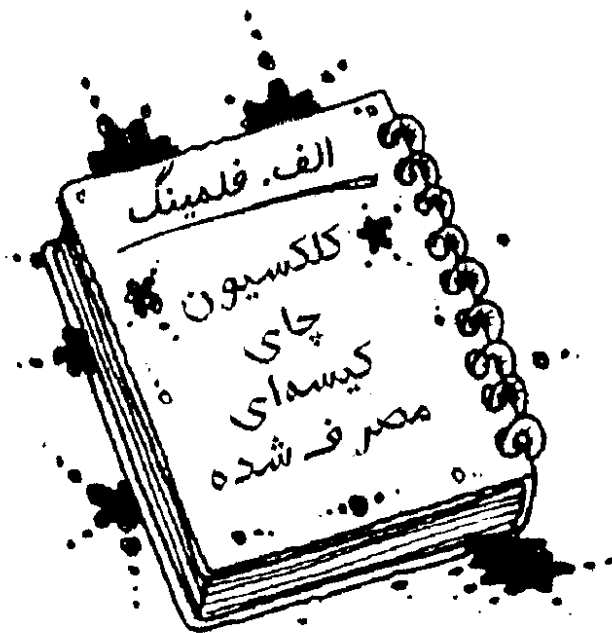 الف. فلمینگ
کلکسیون
چای
کیسه‌ای
مصرف شده